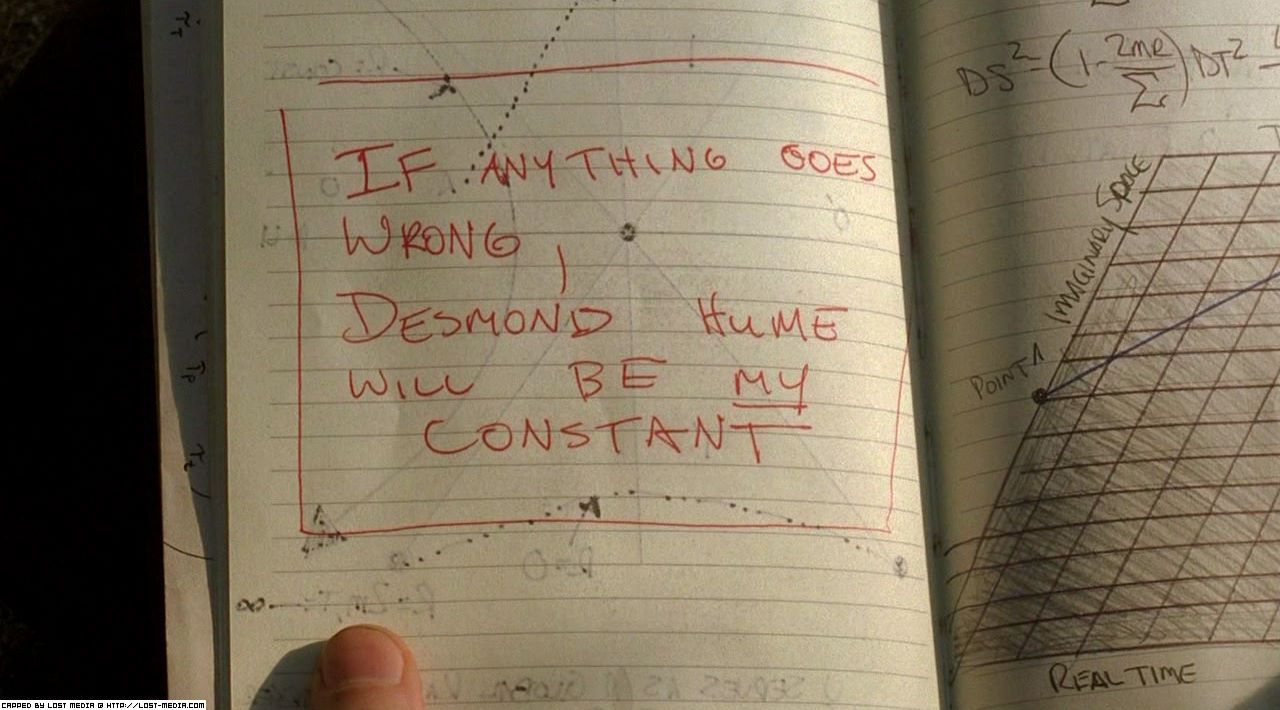 IF ANYTHING GOES
WRONG,
DESMOND HUME
WILL BE MY
CONSTANT
∞
DS² = (1 - 2mr/Σ) DT²
IMAGINARY SPACE
POINT A
REAL TIME
CAPPED BY LOST MEDIA @ HTTP://LOST-MEDIA.COM